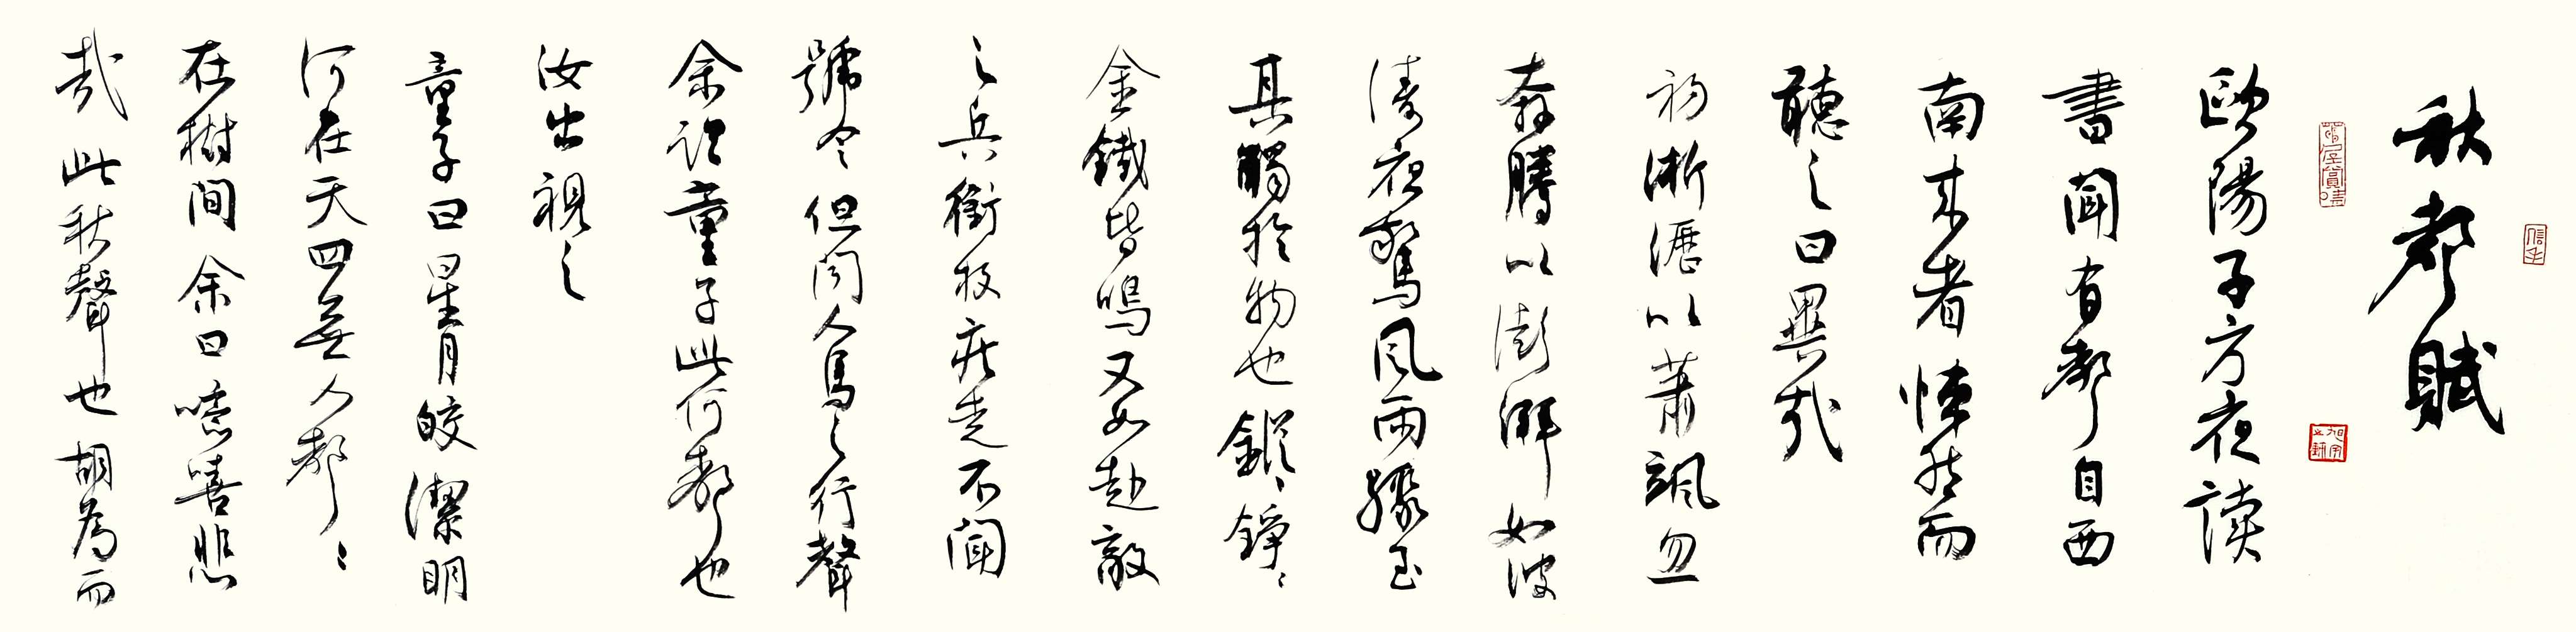 秋聲賦
歐陽子方夜讀
書聞有聲自西
南来者悚然而
聽之曰異哉
初淅瀝以蕭颯忽
奔騰以澎湃如波
濤夜驚風雨驟至
其觸於物也鏦〻錚〻
金鐵皆鳴又如赴敵
之兵銜枚疾走不聞
號令但聞人馬之行聲
余謂童子此何聲也
汝出視之
童子曰星月皎潔明
河在天四無人聲〻
在樹間余曰噫嘻悲
哉此秋聲也胡為而